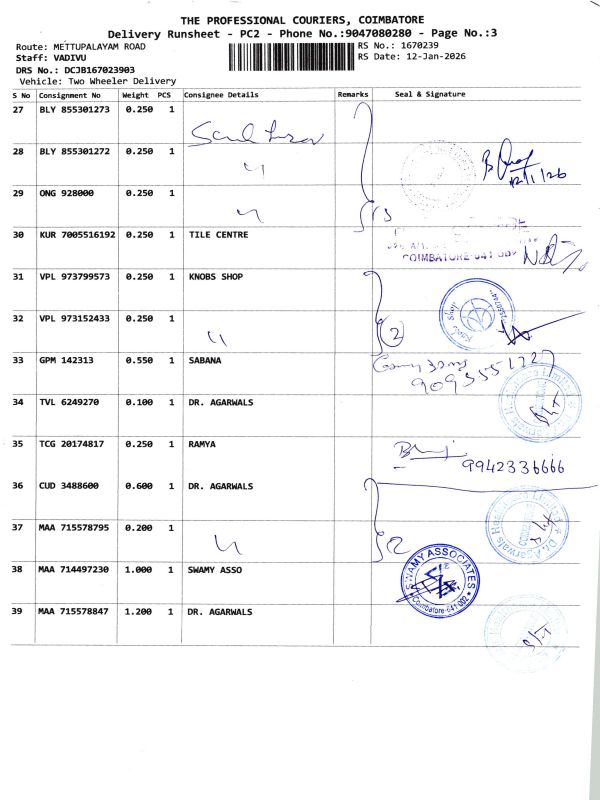 THE PROFESSIONAL COURIERS, COIMBATORE
Delivery Runsheet - PC2 - Phone No.:9047080280 - Page No.:3
Route: METTUPALAYAM ROAD RS No.: 1670239
Staff: VADIVU RS Date: 12-Jan-2026
DRS No.: DCJB167023903
Vehicle: Two Wheeler Delivery
S No Consignment No Weight PCS Consignee Details Remarks Seal & Signature
27 BLY 855301273 0.250 1
28 BLY 855301272 0.250 1 12/1/26
29 ONG 928000 0.250 1
30 KUR 7005516192 0.250 1 TILE CENTRE
COIMBATORE-641 002
31 VPL 973799573 0.250 1 KNOBS SHOP
Knobs Shop
32 VPL 973152433 0.250 1 2
33 GPM 142313 0.550 1 SABANA
34 TVL 6249270 0.100 1 DR. AGARWALS
35 TCG 20174817 0.250 1 RAMYA
9942336666
36 CUD 3488600 0.600 1 DR. AGARWALS
37 MAA 715578795 0.200 1 2
38 MAA 714497230 1.000 1 SWAMY ASSO
SWAMY ASSOCIATES
Coimbatore-641 002
39 MAA 715578847 1.200 1 DR. AGARWALS